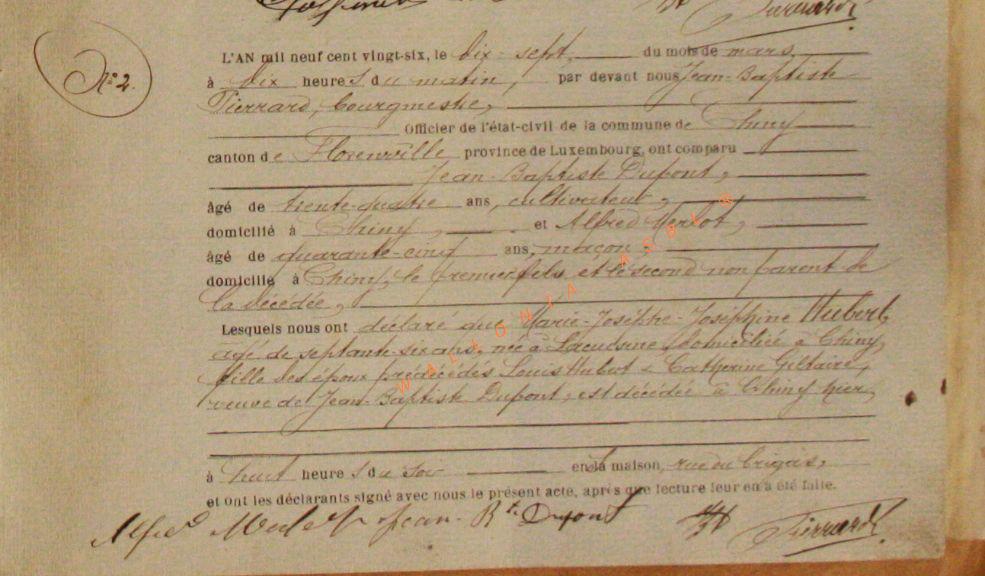 Pierrard
N° 2.
L'AN mil neuf cent vingt-six, le dix-sept, du mois de mars
à dix heures du matin, par devant nous Jean-Baptiste
Pierrard, bourgmestre,
Officier de l'état-civil de la commune de Chiny
canton de Florenville province de Luxembourg, ont comparu
Jean-Baptiste Dupont,
âgé de trente-quatre ans, cultivateur,
domicilié à Chiny, et Alfred Merlot,
âgé de quarante-cinq ans, maçon,
domicilié à Chiny, le premier fils et le second non parent de
la décédée,
Lesquels nous ont déclaré que Marie-Josèphe-Joséphine Hubert,
âgé de septante-six ans, née à Lacuisine, domiciliée à Chiny,
fille des époux prédécédés Louis Hubert & Catherine Giltaire,
veuve de Jean-Baptiste Dupont, est décédée à Chiny hier,
à huit heures du soir en sa maison, rue du
et ont les déclarants signé avec nous le présent acte, après que lecture leur en a été faite.
Alfred Merlot Jean-Bte Dupont Pierrard
WALLONIA ASBL